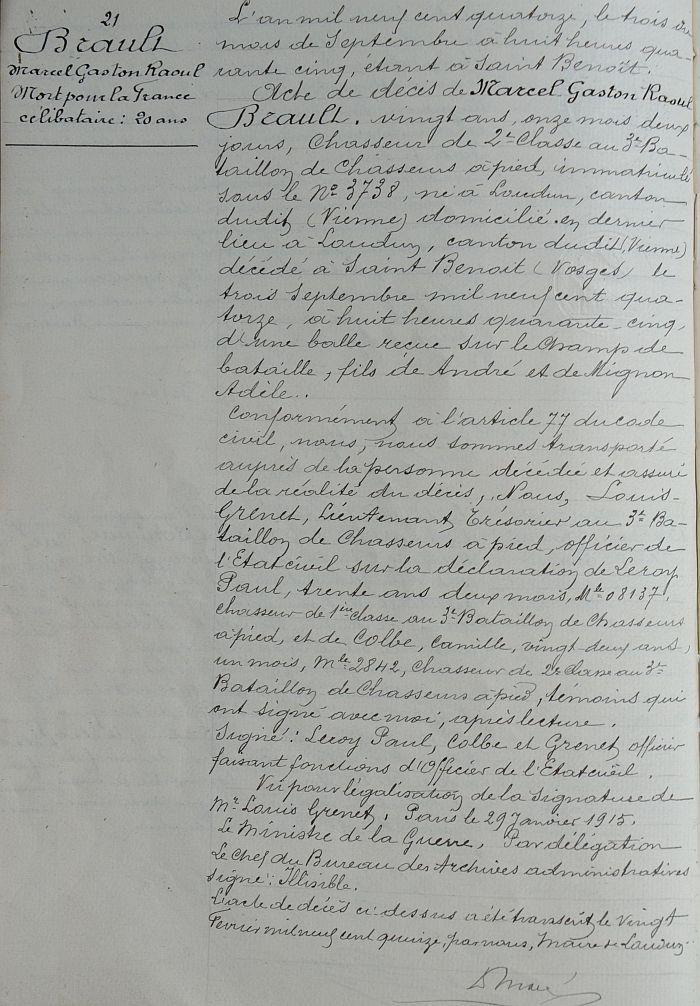 21
Brault
Marcel Gaston Raoul
Mort pour la France
célibataire : 20 ans
L'an mil neuf cent quatorze, le trois du
mois de Septembre à huit heures qua-
rante cinq, étant à Saint Benoît.
Acte de décès de Marcel Gaston Raoul
Brault. vingt ans, onze mois deux
jours, Chasseur de 2e Classe au 3e Ba-
taillon de Chasseurs à pied, immatriculé
sous le No 3738, né à Loudun, canton
dudit (Vienne) domicilié en dernier
lieu à Loudun, canton dudit (Vienne)
décédé à Saint Benoit (Vosges) le
trois Septembre mil neuf cent qua-
torze, à huit heures quarante-cinq,
d'une balle reçue sur le champ de
bataille, fils de André et de Mignon
Adèle..
Conformément à l'article 77 du code
civil, nous, nous sommes transporté
auprès de la personne décédée et assuré
de la réalité du décès, Nous, Louis-
Grenet, Lieutenant Trésorier au 3e Ba-
taillon de Chasseurs à pied, officier de
l'Etat civil sur la déclaration de Leroy
Paul, trente ans deux mois, Mle 08137,
chasseur de 1ère classe au 3e Bataillon de Chasseurs
à pied, et de Colbe, Camille, vingt-deux ans,
un mois, Mle 2842, Chasseur de 2e Classe au 3e
Bataillon de Chasseurs à pied, témoins qui
ont signé avec moi, après lecture.
Signé : Leroy Paul, Colbe et Grenet, officier
faisant fonctions d'Officier de l'Etat civil.
Vu pour légalisation de la signature de
Mr Louis Grenet. Paris le 29 Janvier 1915.
Le Ministre de la Guerre, Par délégation
Le Chef du Bureau des Archives administratives
signé : Illisible.
L'acte de décès ci-dessus a été transcrit, le vingt
Février mil neuf cent quinze, par nous, Maire de Loudun